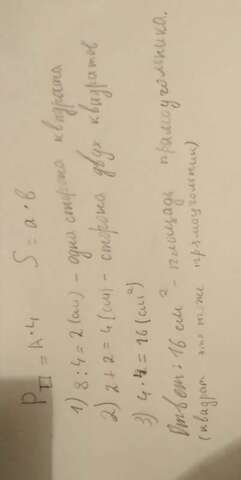 P□ = A·4    S = a·b
1) 8:4=2(см) - одна сторона квадрата
2) 2+2=4(см) - сторона двух квадратов
3) 4·4=16(см²)
Ответ: 16 см² - площадь прямоугольника.
(квадрат это тоже прямоугольник)